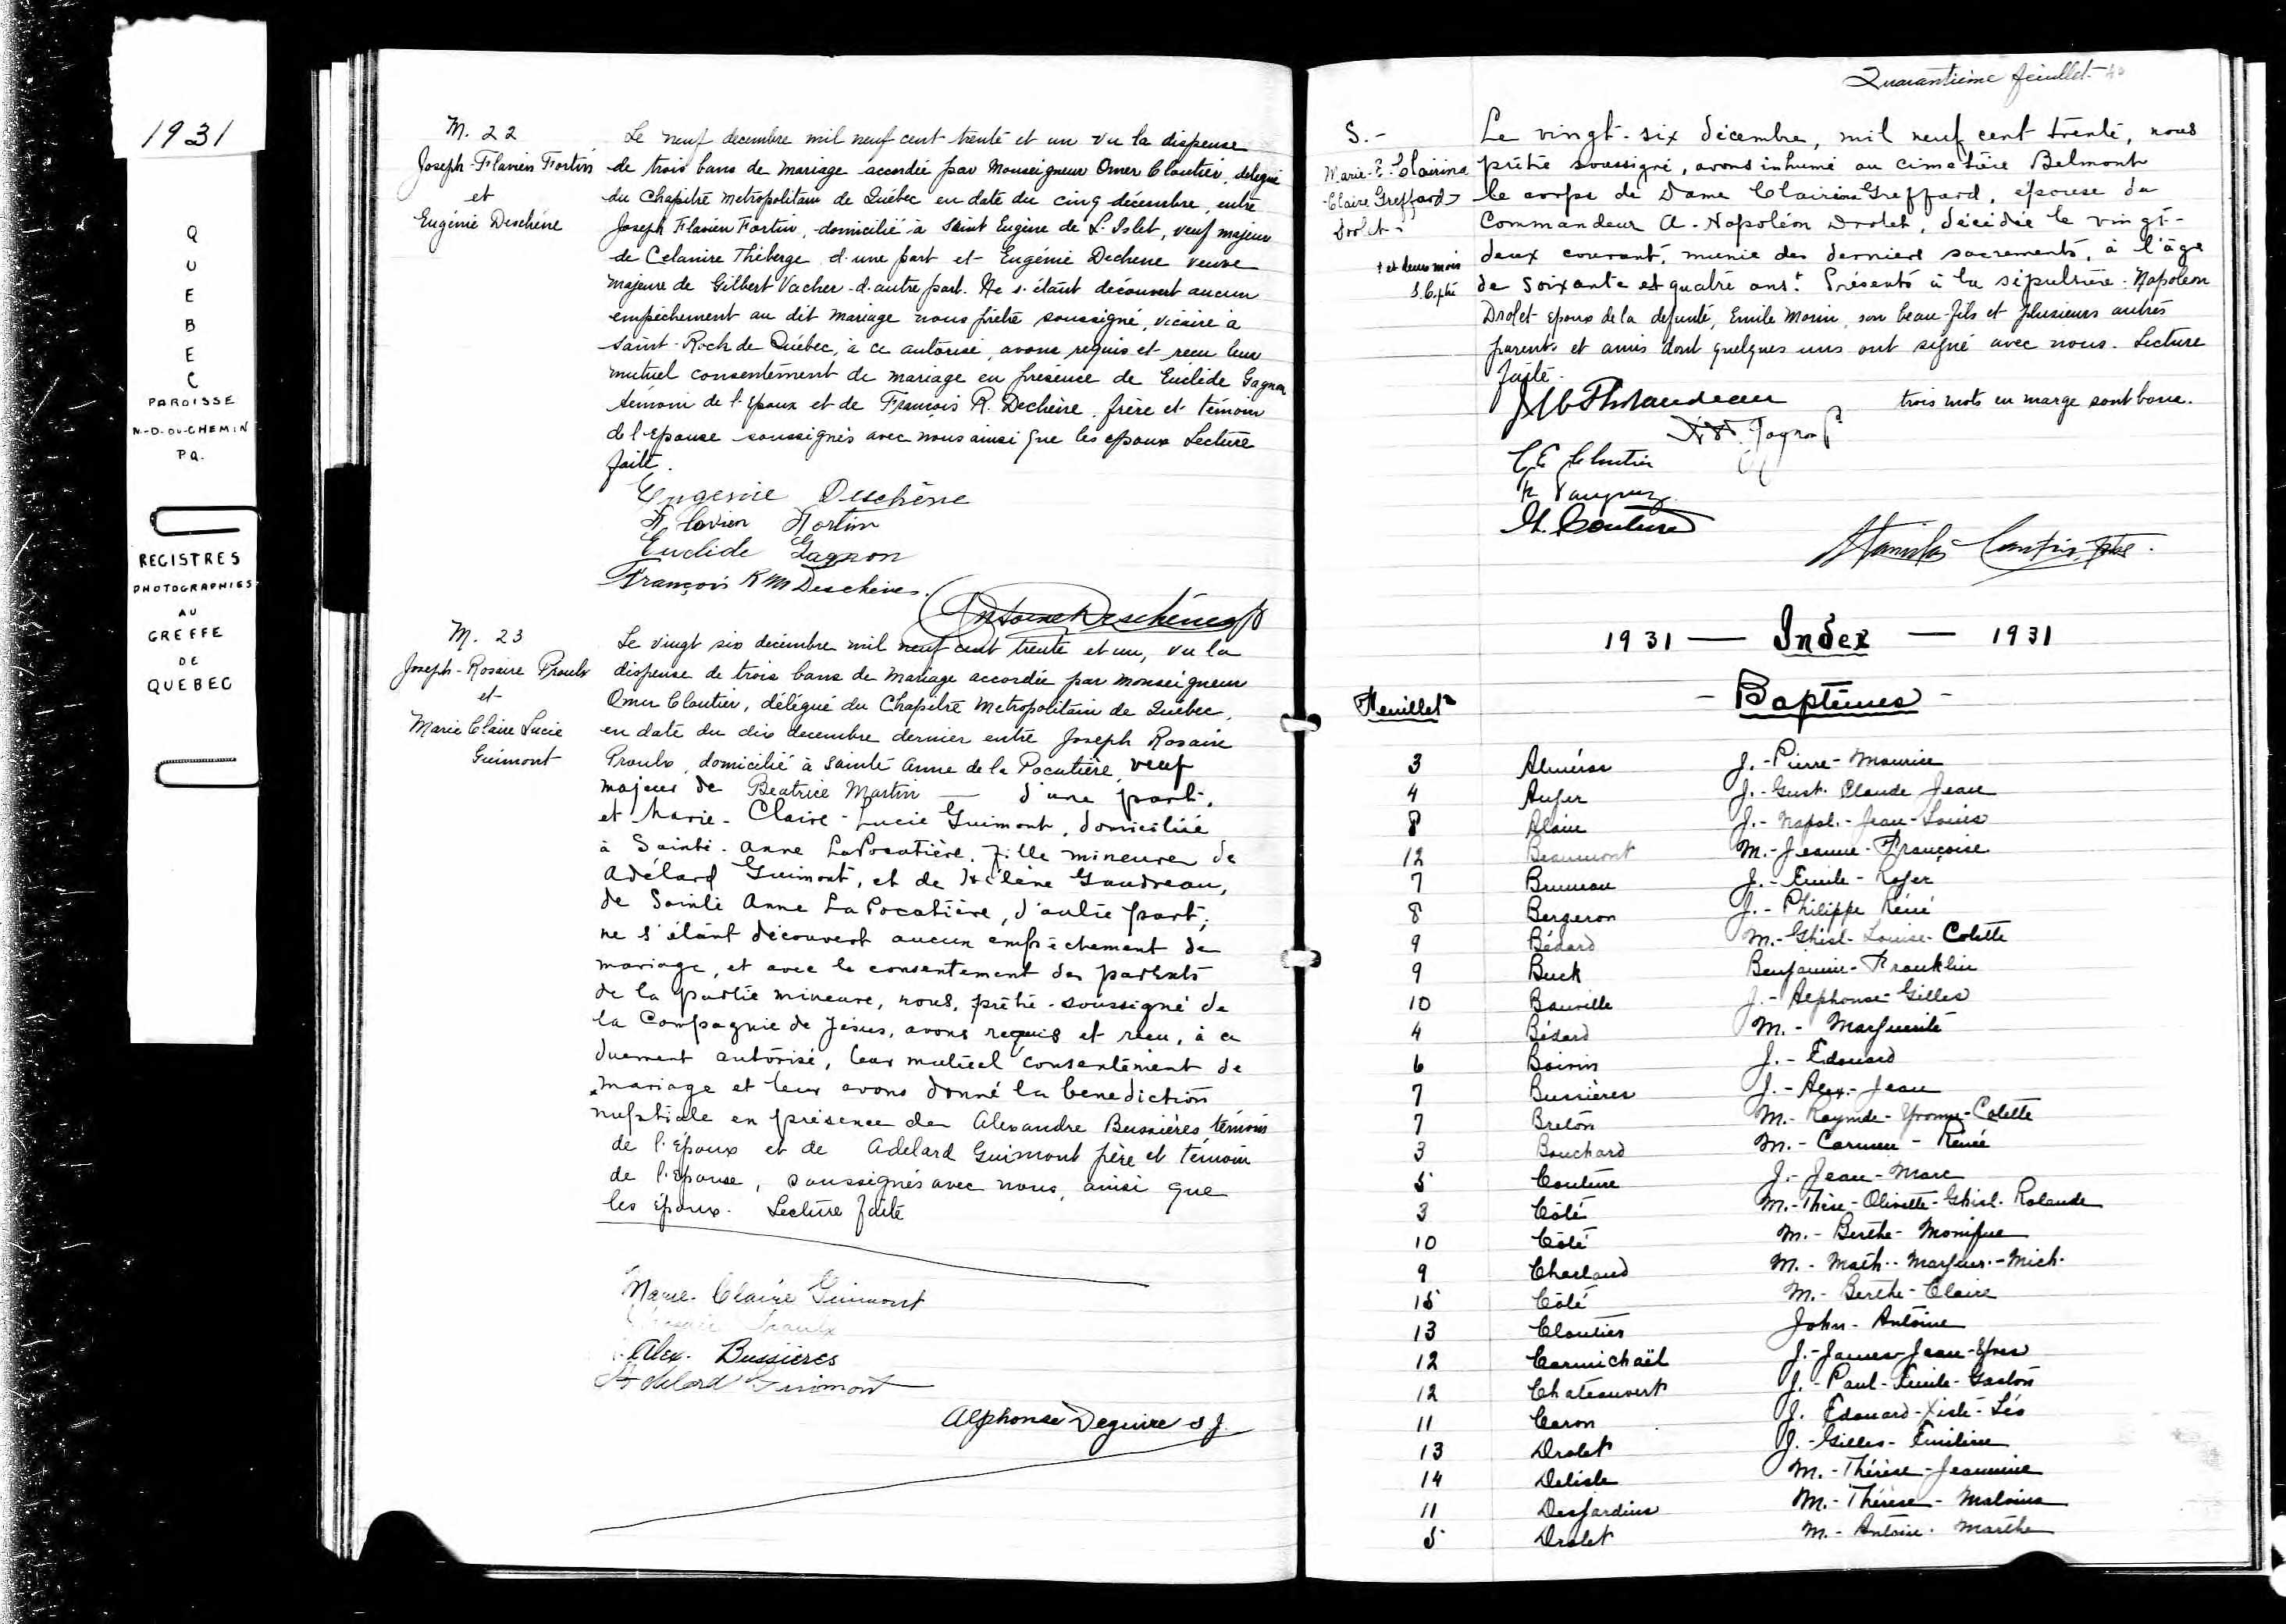 1931
QUEBEC
PAROISSE
N.-D.-DU-CHEMIN
PQ.
REGISTRES
PHOTOGRAPHIES
AU
GREFFE
DE
QUEBEC
M. 22
Joseph-Flavien Fortin
et
Eugénie Deschêne
Le neuf decembre mil neuf cent trente et un vu la dispense
de trois bans de mariage accordée par Monseigneur Omer Cloutier, délégué
du Chapitre Metropolitain de Québec en date du cinq décembre, entre
Joseph Flavien Fortin, domicilié à Saint Eugène de L'Islet, veuf majeur
de Celanire Théberge d'une part et Eugénie Dechene veuve
majeure de Gilbert Vacher d'autre part. Ne s'étant découvert aucun
empêchement au dit mariage nous prêtre soussigné, vicaire à
Saint-Roch de Québec, à ce autorisé, avons requis et reçu leur
mutuel consentement de mariage en présence de Euclide Gagnon
témoin de l'époux et de François R. Dechêne, frère et témoin
de l'épouse soussignés avec nous ainsi que les époux Lecture
faite.
Eugenie Deschêne
Flavien Fortin
Euclide Gagnon
François R M Deschênes.
Antoine Deschênes
M. 23
Joseph-Rosaire Proulx
et
Marie Claire Lucie
Guimont
Le vingt six décembre mil neuf cent trente et un, vu la
dispense de trois bans de mariage accordée par monseigneur
Omer Cloutier, délégué du Chapitre Metropolitain de Québec,
en date du dix decembre dernier entre Joseph Rosaire
Proulx, domicilié à Sainte Anne de la Pocatière, veuf
majeur de Beatrice Martin — d'une part,
et Marie-Claire-Lucie Guimont, domiciliée
à Sainte-Anne LaPocatière, fille mineure de
Adélard Guimont, et de Hélène Gaudreau,
de Sainte Anne LaPocatière, d'autre part;
ne s'étant découvert aucun empêchement de
mariage, et avec le consentement des parents
de la partie mineure, nous, prêtre-soussigné de
la Compagnie de Jésus, avons requis et reçu, à ce
duement autorisé, leur mutuel consentement de
mariage et leur avons donné la benediction
nuptiale en présence de Alexandre Bussières témoin
de l'époux et de Adelard Guimont père et témoin
de l'épouse, soussignés avec nous, ainsi que
les époux. Lecture faite
Marie-Claire Guimont
Proulx
Alex. Bussières
Adelard Guimont
Alphonse Deguire s j.
Quarantième feuillet 40
S.-
Marie-E. Clairina
Claire Greffard
Drolet
+ et deux mois
S. C. ptre
Le vingt-six décembre, mil neuf cent trente, nous
prêtre soussigné, avons inhumé au cimetière Belmont
le corps de Dame Clairina Greffard, épouse du
Commandeur A. Napoléon Drolet, décédée le vingt-
deux courant, munie des derniers sacrements, à l'âge
de soixante et quatre ans.+ Présents à la sépulture: Napoléon
Drolet époux de la defunte, Emile Morin, son beau-fils et plusieurs autres
parents et amis dont quelques uns ont signé avec nous. Lecture
faite.
trois mots en marge sont bons.
C E Cloutier
H. Couture
Stanislas Cantin, ptre.
1931 — Index — 1931
- Baptêmes -
Feuillets
3 Alméras J.-Pierre-Maurice
4 Auger J.-Gust. Claude Jean
8 Alain J.-Napol.-Jean-Louis
12 Beaumont M.-Jeanne-Françoise
7 Bruneau J.-Emile-Roger
8 Bergeron J.-Philippe Réné
9 Bédard M.-Ghisl-Louise-Colette
9 Buck Benjamin-Franklin
10 Banville J.-Alphonse-Gilles
4 Bédard M.-Marguerite
6 Boivin J.-Edouard
7 Bussières J.-Alex.-Jean
7 Breton M.-Raymde-Yvonne-Colette
3 Bouchard M.-Carmen-Renée
5 Couture J.-Jean-Marc
3 Côté M.-Thèse-Olivette-Ghisl. Rolande
10 Côté M.-Berthe-Monique
9 Charland M.-Math.-Marguer.-Mich.
15 Côté M.-Berthe-Claire
13 Cloutier John-Antoine
12 Carmichaël J.-James-Jean-Yves
12 Chateauvert J.-Paul-Emile-Gaston
11 Caron J. Edouard-Xiste-Léo
13 Drolet J.-Gilles-Emilien
14 Delisle M.-Thérèse-Jeannine
11 Desjardins M.-Thérèse-Malvina
5 Drolet M.-Antoine. Marthe